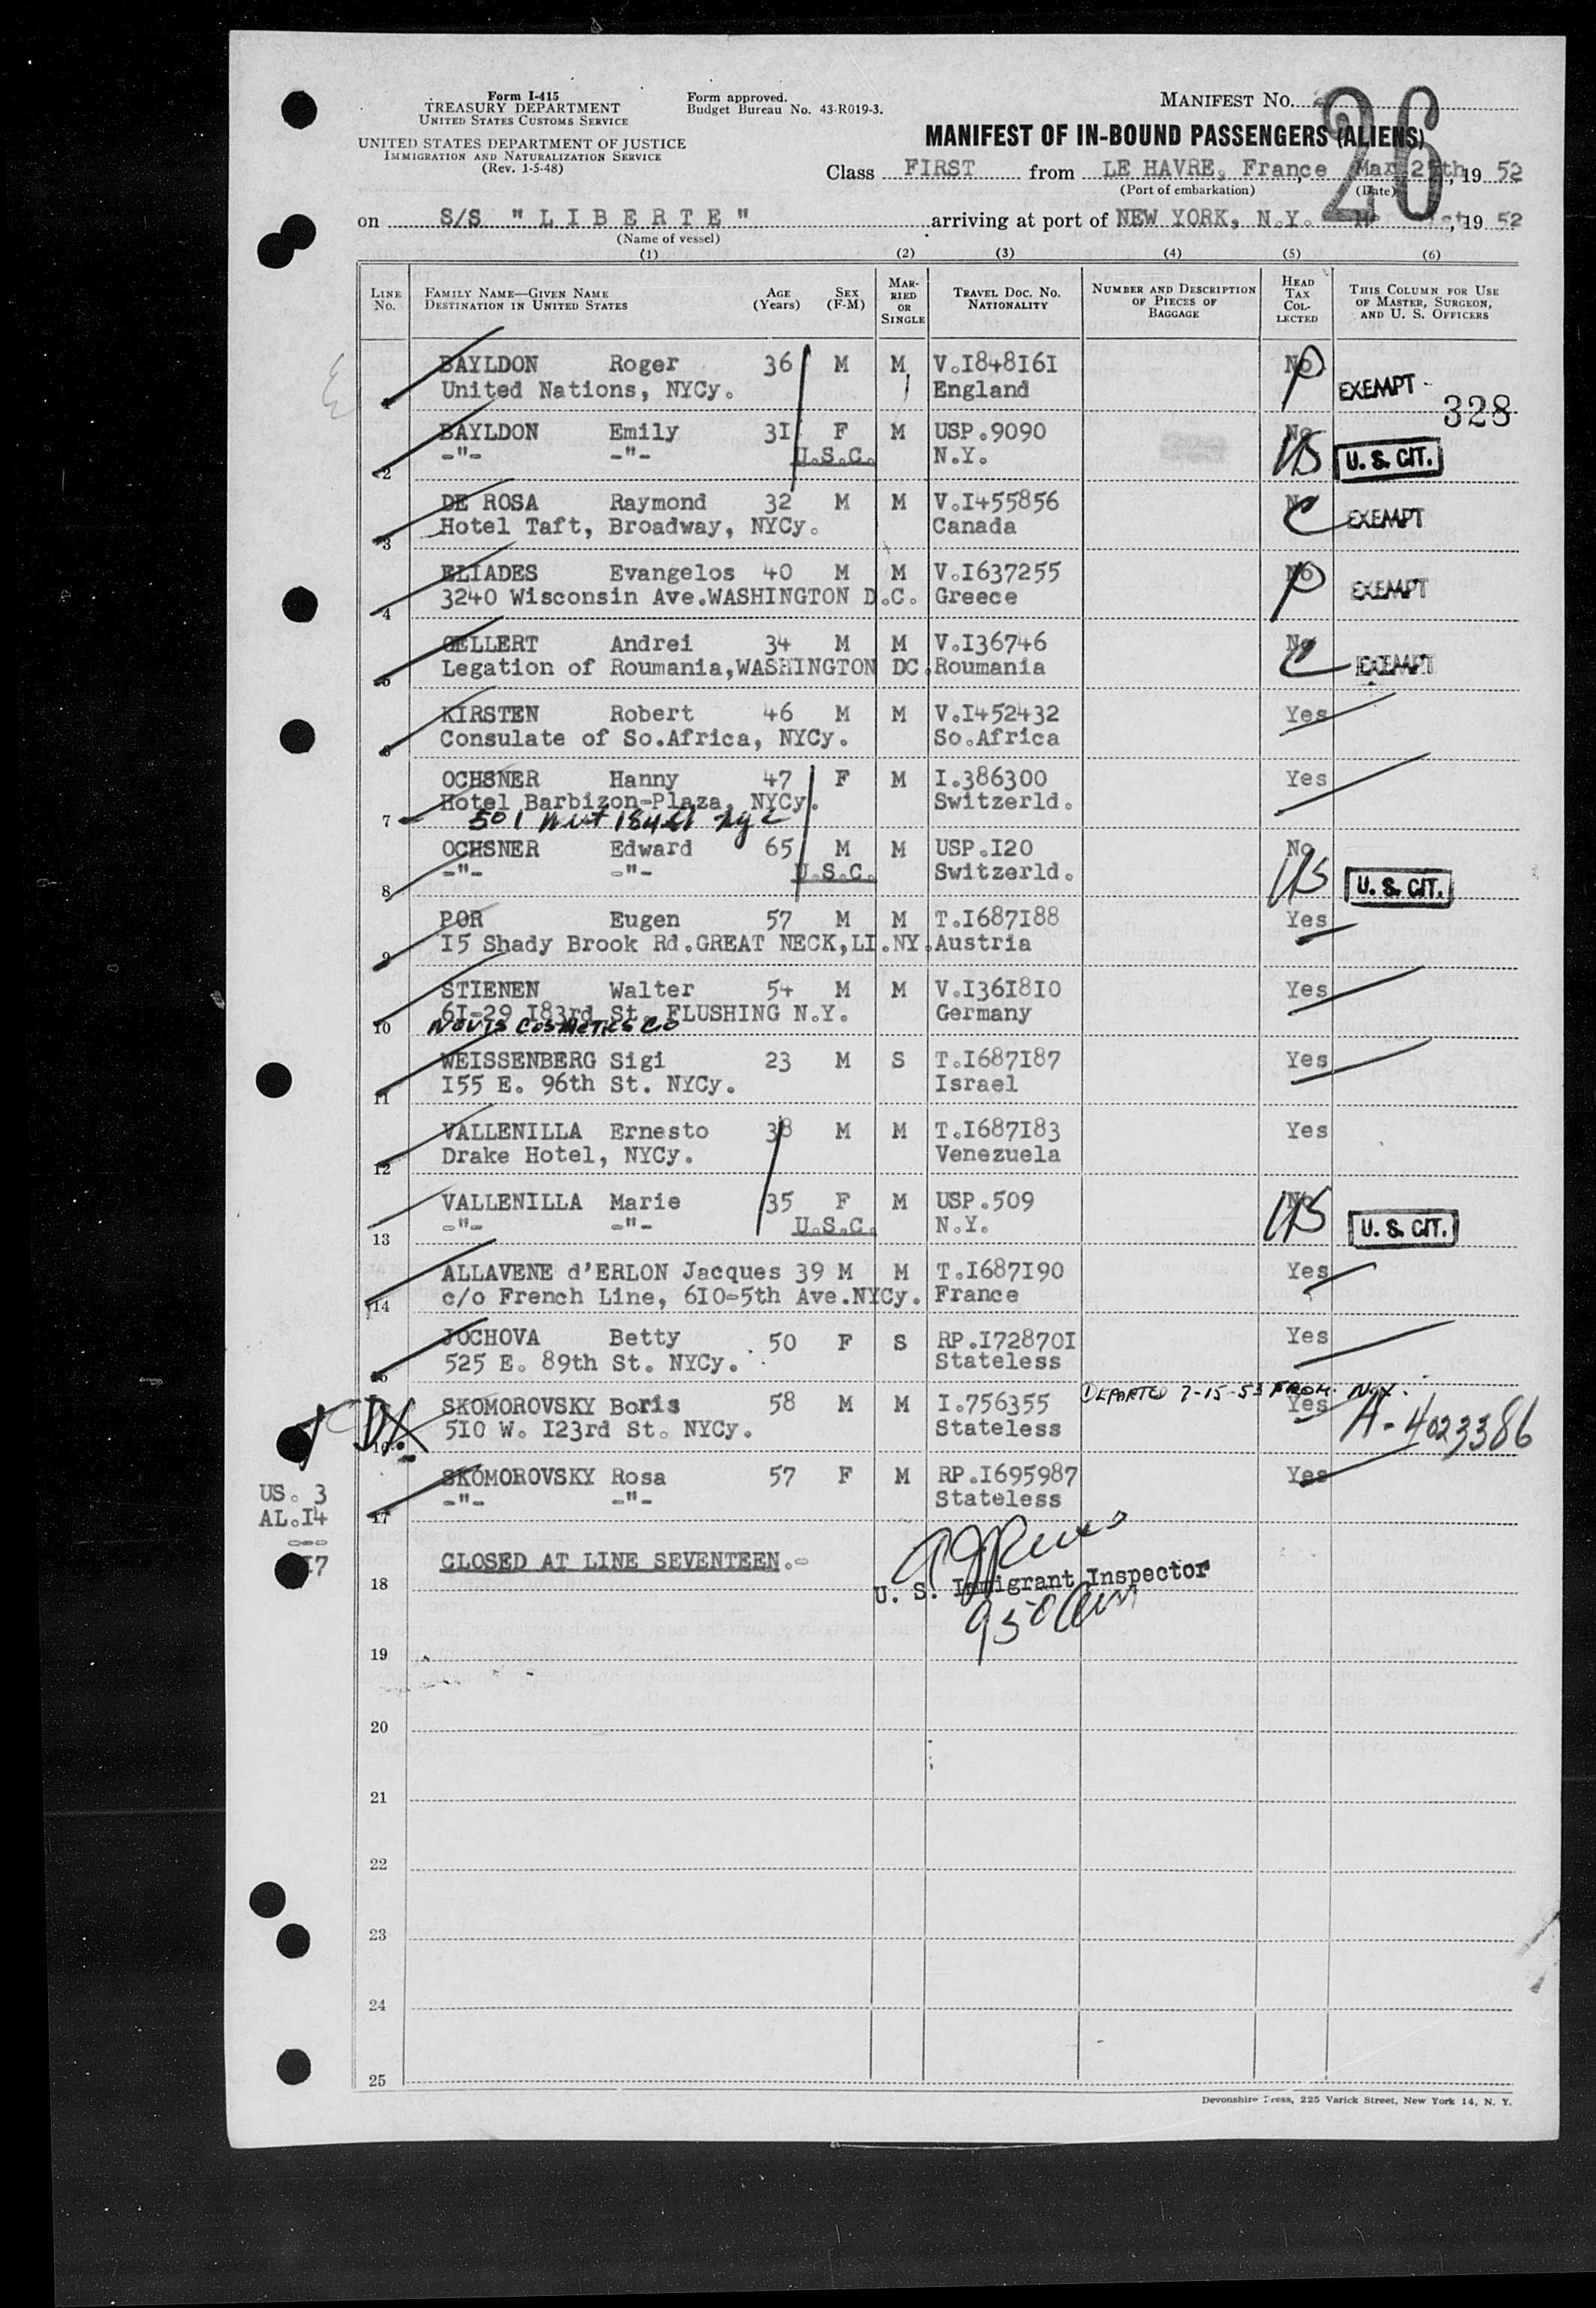 Form I-415
TREASURY DEPARTMENT
UNITED STATES CUSTOMS SERVICE
UNITED STATES DEPARTMENT OF JUSTICE
IMMIGRATION AND NATURALIZATION SERVICE
(Rev. 1-5-48)
Form approved.
Budget Bureau No. 43-R019-3.
MANIFEST No.
26
MANIFEST OF IN-BOUND PASSENGERS (ALIENS)
Class FIRST from LE HAVRE, France Mar 2 th, 19 52
(Port of embarkation) (Date)
on S/S "LIBERTE" arriving at port of NEW YORK, N.Y. st, 19 52
(Name of vessel)
(1) (2) (3) (4) (5) (6)
LINE No. FAMILY NAME—GIVEN NAME DESTINATION IN UNITED STATES AGE (Years) SEX (F-M) MARRIED OR SINGLE TRAVEL DOC. NO. NATIONALITY NUMBER AND DESCRIPTION OF PIECES OF BAGGAGE HEAD TAX COLLECTED THIS COLUMN FOR USE OF MASTER, SURGEON, AND U. S. OFFICERS
BAYLDON Roger 36 M M V.I848I6I No P
1 United Nations, NYCy. England EXEMPT
328
BAYLDON Emily 3I F M USP.9090 No US
2 -"- -"- U.S.C. N.Y. U. S. CIT.
DE ROSA Raymond 32 M M V.I455856 No C
3 Hotel Taft, Broadway, NYCy. Canada EXEMPT
ELIADES Evangelos 40 M M V.I637255 No P
4 3240 Wisconsin Ave.WASHINGTON D.C. Greece EXEMPT
GELLERT Andrei 34 M M V.I36746 No C
5 Legation of Roumania,WASHINGTON DC.Roumania EXEMPT
KIRSTEN Robert 46 M M V.I452432 Yes
6 Consulate of So.Africa, NYCy. So.Africa
OCHSNER Hanny 47 F M I.386300 Yes
Hotel Barbizon-Plaza, NYCy. Switzerld.
7 501 West 184 St NYC
OCHSNER Edward 65 M M USP.I20 No US
8 -"- -"- U.S.C. Switzerld. U. S. CIT.
POR Eugen 57 M M T.I687I88 Yes
9 I5 Shady Brook Rd.GREAT NECK,LI.NY.Austria
STIENEN Walter 54 M M V.I36I8I0 Yes
6I-29 I83rd St. FLUSHING N.Y. Germany
10 NOVIS COSMETICS CO
WEISSENBERG Sigi 23 M S T.I687I87 Yes
11 I55 E. 96th St. NYCy. Israel
VALLENILLA Ernesto 38 M M T.I687I83 Yes
12 Drake Hotel, NYCy. Venezuela
VALLENILLA Marie 35 F M USP.509 No US
13 -"- -"- U.S.C. N.Y. U. S. CIT.
ALLAVENE d'ERLON Jacques 39 M M T.I687I90 Yes
14 c/o French Line, 6I0-5th Ave.NYCy. France
JOCHOVA Betty 50 F S RP.I72870I Yes
15 525 E. 89th St. NYCy. Stateless
DEPARTED 7-15-53 FROM. NYX.
SKOMOROVSKY Boris 58 M M I.756355 Yes
16 5I0 W. I23rd St. NYCy. Stateless A-4023386
SKOMOROVSKY Rosa 57 F M RP.I695987 Yes
17 -"- -"- Stateless
US. 3
AL.I4
---
I7
CLOSED AT LINE SEVENTEEN.-
18 U. S. Immigrant Inspector
19
20
21
22
23
24
25
Devonshire Press, 225 Varick Street, New York 14, N. Y.